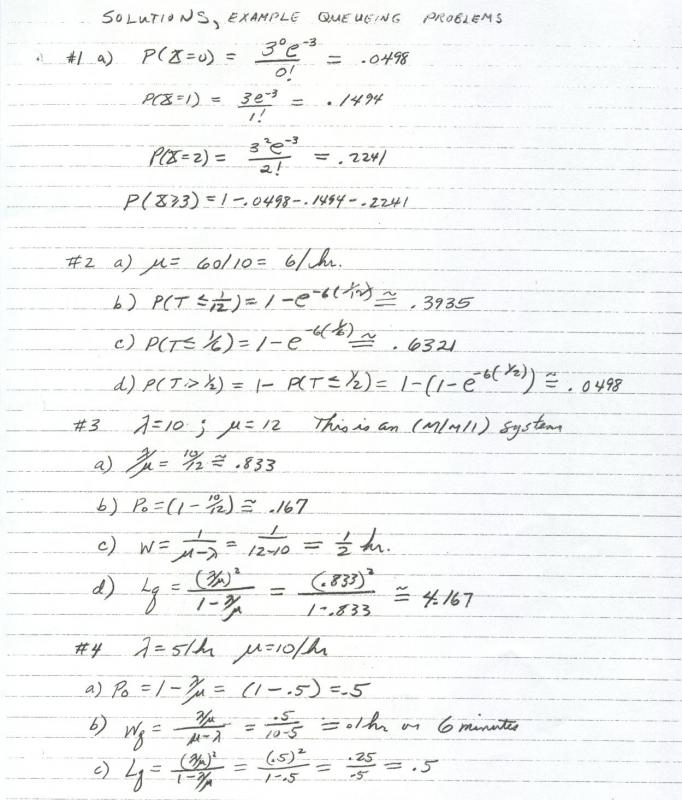 SOLUTIONS, EXAMPLE QUEUEING PROBLEMS
#1 a) P(X=0) = 3⁰e⁻³/0! = .0498
P(X=1) = 3e⁻³/1! = .1494
P(X=2) = 3²e⁻³/2! = .2241
P(X≥3) = 1-.0498-.1494-.2241
#2 a) μ = 60/10 = 6/hr.
b) P(T ≤ 1/12) = 1-e^-6(1/12) ≅ .3935
c) P(T ≤ 1/6) = 1-e^-6(1/6) ≅ .6321
d) P(T > 1/2) = 1- P(T ≤ 1/2) = 1-(1-e^-6(1/2)) ≅ .0498
#3 λ=10 ; μ=12 This is an (M/M/1) system
a) λ/μ = 10/12 ≅ .833
b) P₀ = (1-10/12) ≅ .167
c) W = 1/(μ-λ) = 1/(12-10) = 1/2 hr.
d) Lq = (λ/μ)²/(1-λ/μ) = (.833)²/(1-.833) ≅ 4.167
#4 λ=5/hr μ=10/hr
a) P₀ = 1-λ/μ = (1-.5) = .5
b) Wq = (λ/μ)/(μ-λ) = .5/(10-5) = .1hr or 6 minutes
c) Lq = (λ/μ)²/(1-λ/μ) = (.5)²/(1-.5) = .25/.5 = .5